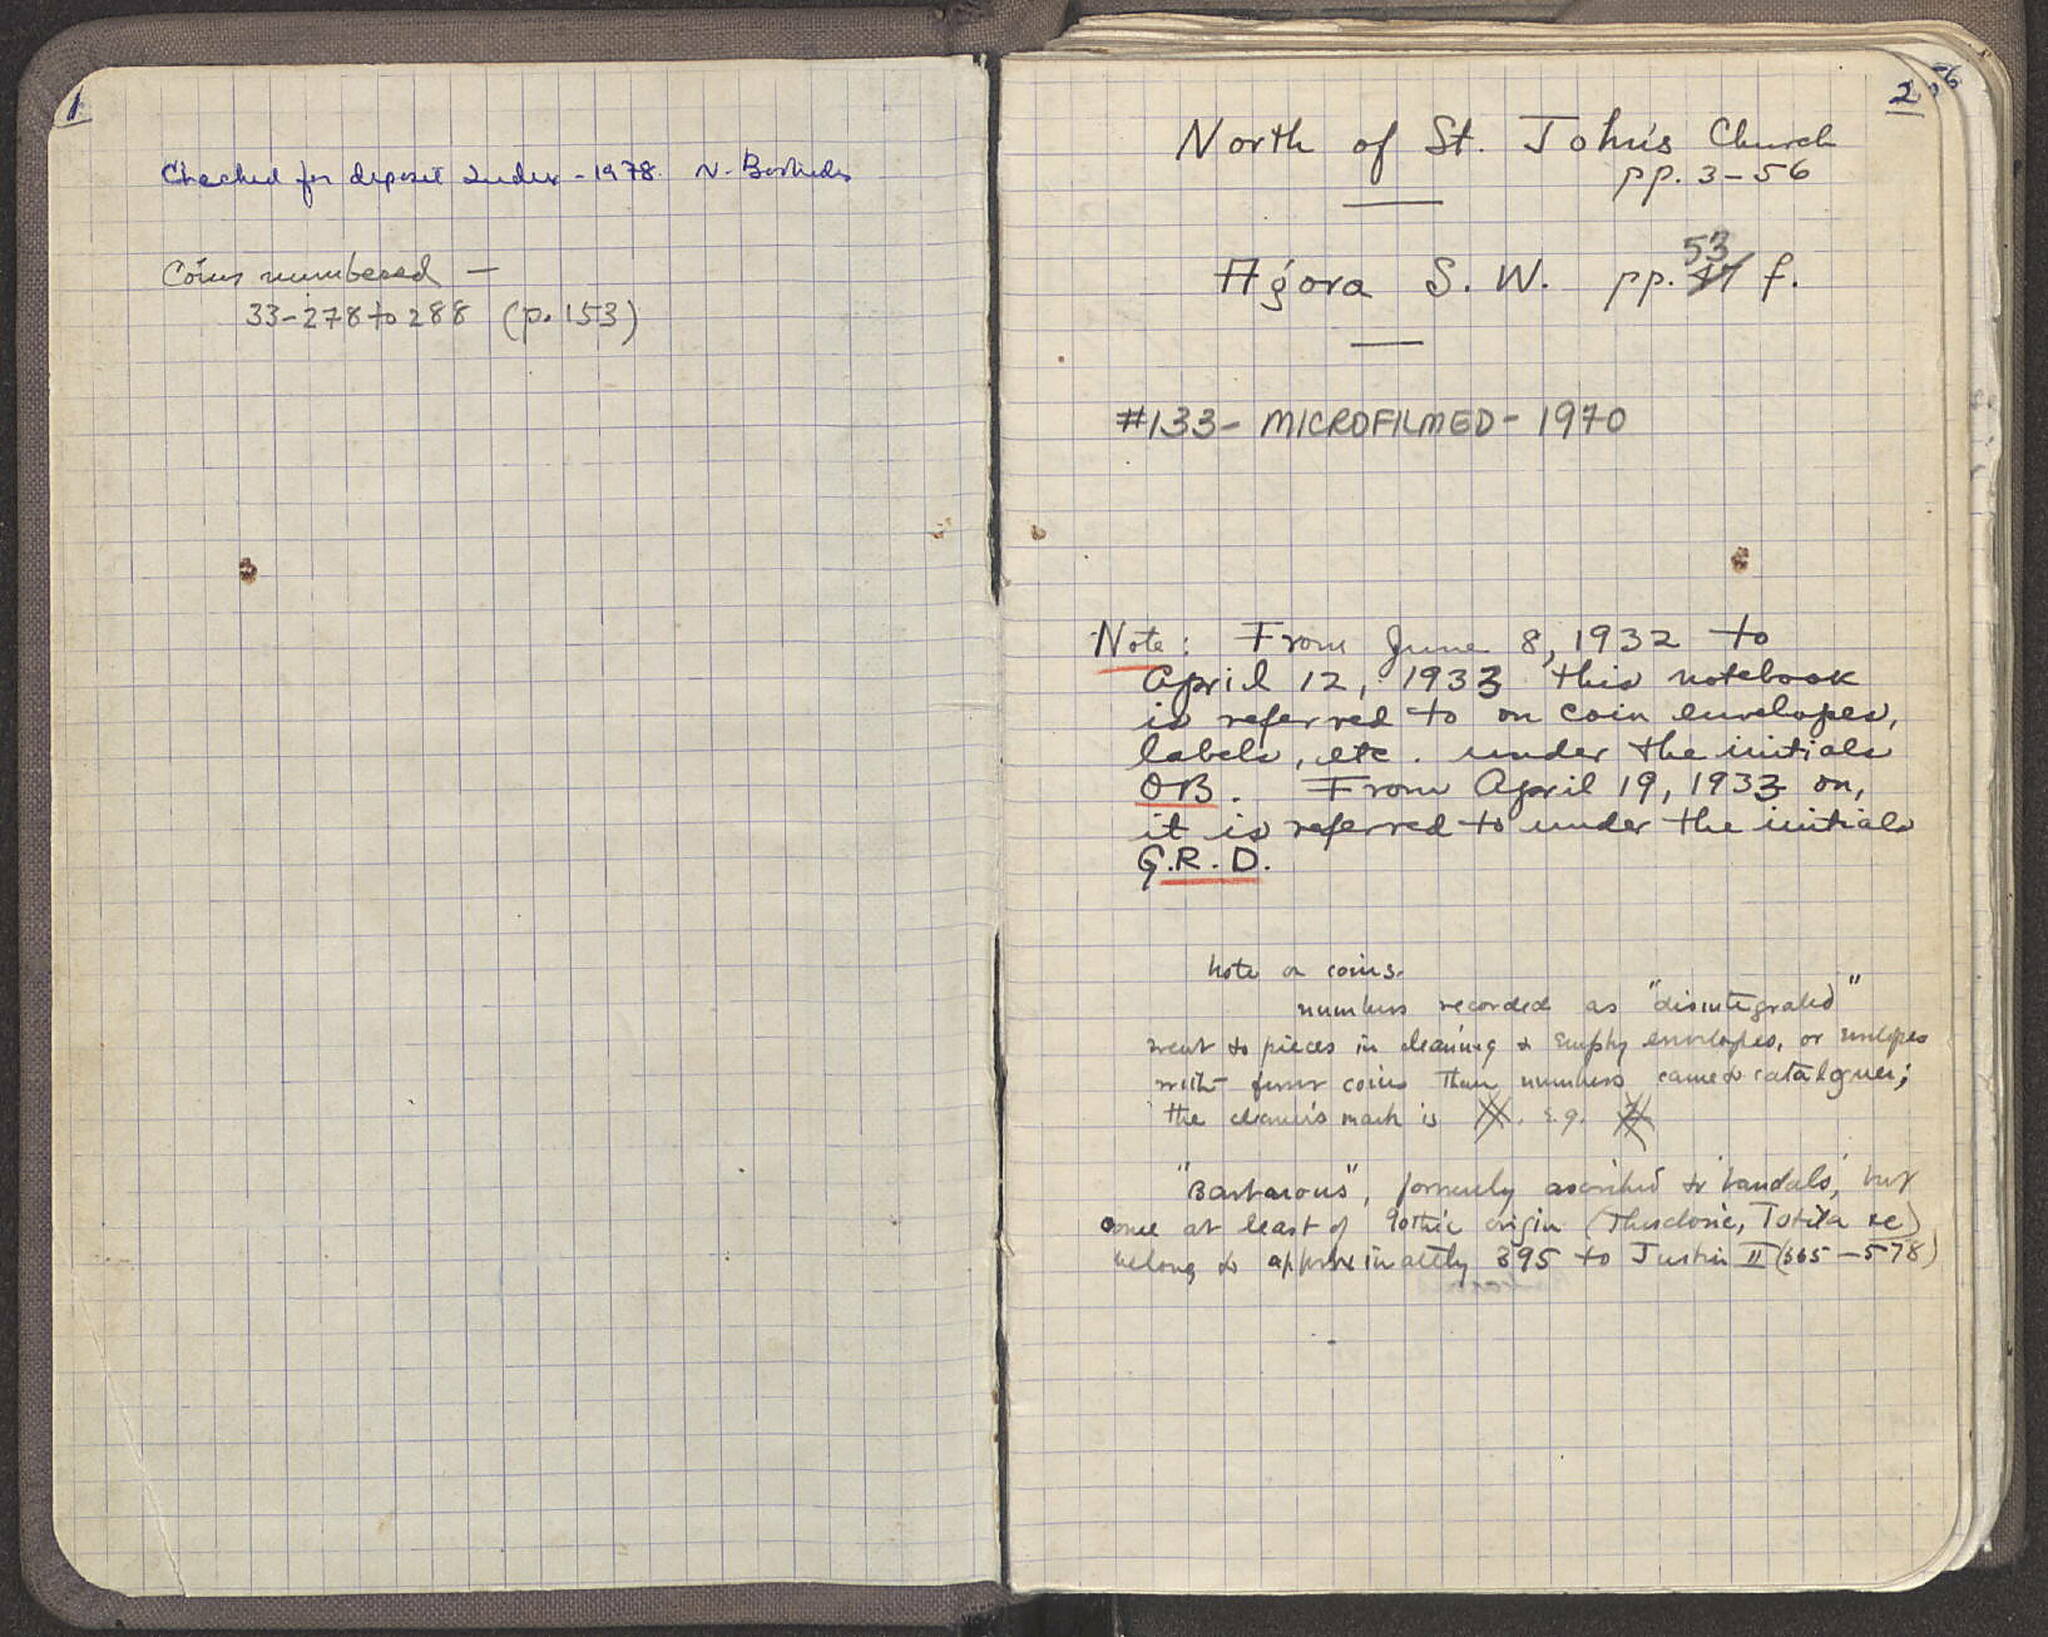 1
Checked for deposit Index - 1978. N.
Coins numbered —
33-278 to 288 (p. 153)
2
North of St. John's Church
pp. 3-56
53
Agora S. W. pp. 47 f.
#133- MICROFILMED- 1970
Note: From June 8, 1932 to
April 12, 1933 this notebook
is referred to on coin envelopes,
labels, etc. under the initials
OB. From April 19, 1933 on,
it is referred to under the initials
G.R.D.
Note on coins.
numbers recorded as "disintegrated"
went to pieces in cleaning & empty envelopes, or envelopes
with fewer coins than numbers came to cataloguer;
the cleaner's mark is XX. e.g.
"Barbarous", formerly ascribed to 'Vandals', but
some at least of Gothic origin (Theodoric, Totila etc)
belong to approximately 395 to Justin II (565-578)